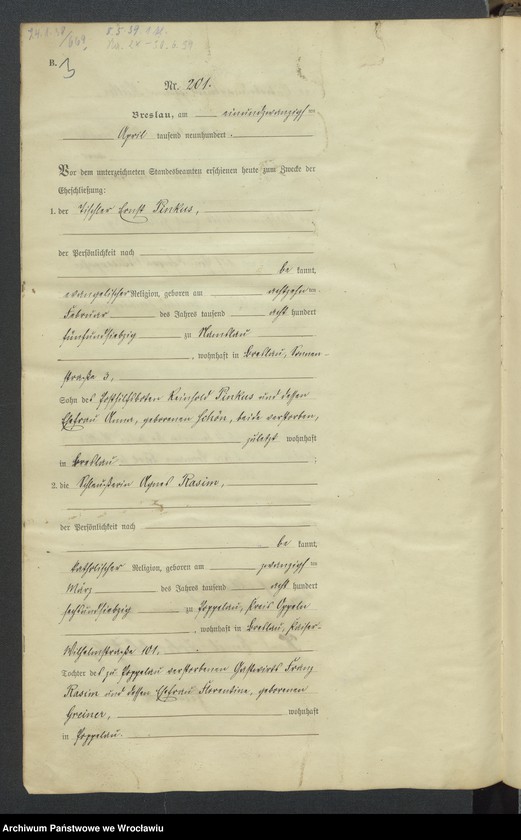 B.
3
Nr. 201.
Breslau, am einundzwanzigsten
April tausend neunhundert.
Vor dem unterzeichneten Standesbeamten erschienen heute zum Zwecke der
Eheschließung:
1. der Tischler Ernst Pinkus,
der Persönlichkeit nach
be kannt,
evangelischer Religion, geboren am achtzehnten
Februar des Jahres tausend acht hundert
fünfundsiebzig zu Namslau
, wohnhaft in Breslau, Sonnen-
straße 3,
Sohn des Reinhold Pinkus und dessen
Ehefrau Anna, geborenen Schön, beide verstorben,
zuletzt wohnhaft
in Breslau ;
2. die Agnes Rasim,
der Persönlichkeit nach
be kannt,
katholischer Religion, geboren am zwanzigsten
März des Jahres tausend acht hundert
sechsundsiebzig zu Poppelau, Kreis Oppeln
, wohnhaft in Breslau, Kaiser-
Wilhelmstraße 101,
Tochter des zu Poppelau verstorbenen Gastwirts Franz
Rasim und dessen Ehefrau Florentine, geborenen
Greiner, wohnhaft
in Poppelau.
Archiwum Państwowe we Wrocławiu